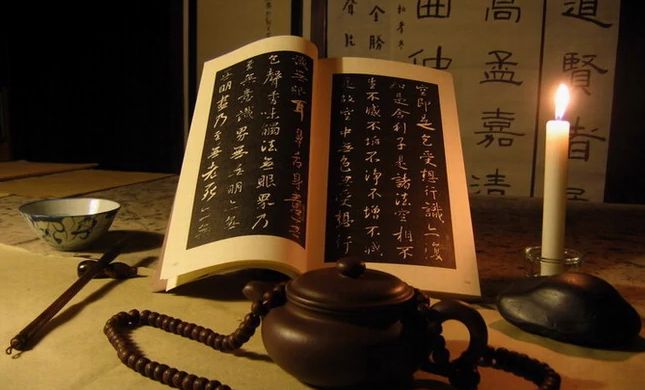 空即是色受想行識亦復
如是舍利子是諸法空相不
生不滅不垢不淨不增不減
是故空中無色無受想行
識無眼耳鼻舌身意無
色聲香味觸法無眼界乃
至無意識界無無明亦無
無明盡乃至無老死亦無
道賢者
高孟嘉清
曲仲
全勝